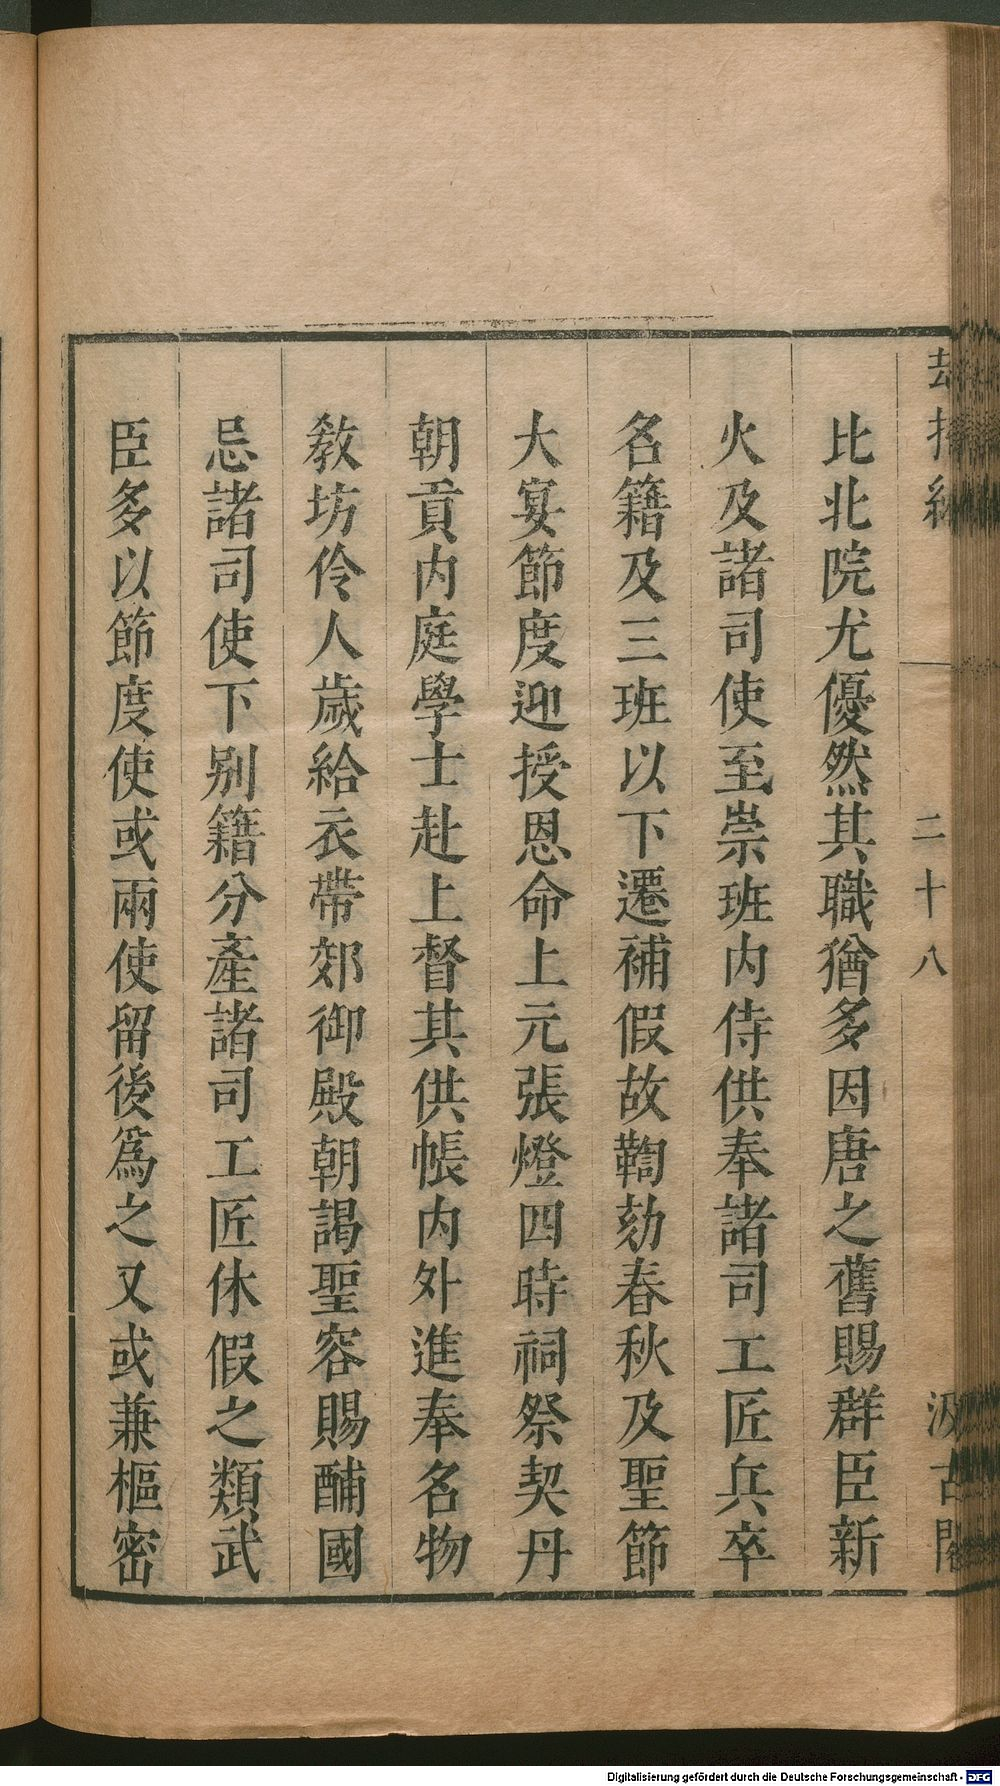 比北院尤優然其職猶多因唐之舊賜群臣新
火及諸司使至崇班内侍供奉諸司工匠兵卒
名籍及三班以下遷補假故鞫劾春秋及聖節
大宴節度迎授恩命上元張燈四時祠祭契丹
朝貢内庭學士赴上督其供帳内外進奉名物
敎坊伶人歲給衣帶郊御殿朝謁聖容賜酺國
忌諸司使下别籍分產諸司工匠休假之類武
臣多以節度使或兩使留後爲之又或兼樞密
二十八
汲古閣
Digitalisierung gefördert durch die Deutsche Forschungsgemeinschaft - DFG